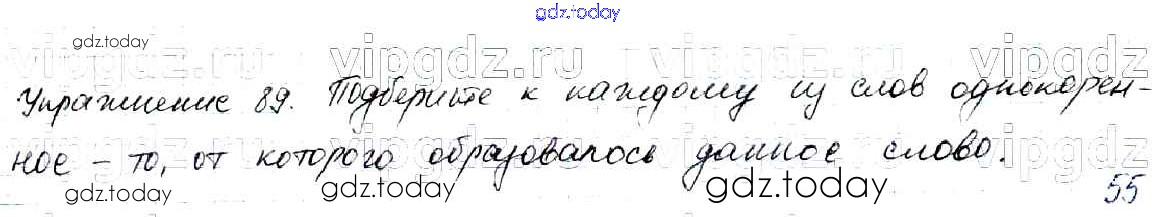 gdz.today
gdz.today
vipgdz.ru vipgdz.ru vipgdz
Упражнение 89. Подберите к каждому из слов однокорен-
ное – то, от которого образовалось данное слово.
vipgdz.ru vipgdz.ru vipgdz
gdz.today gdz.today gdz.today
55